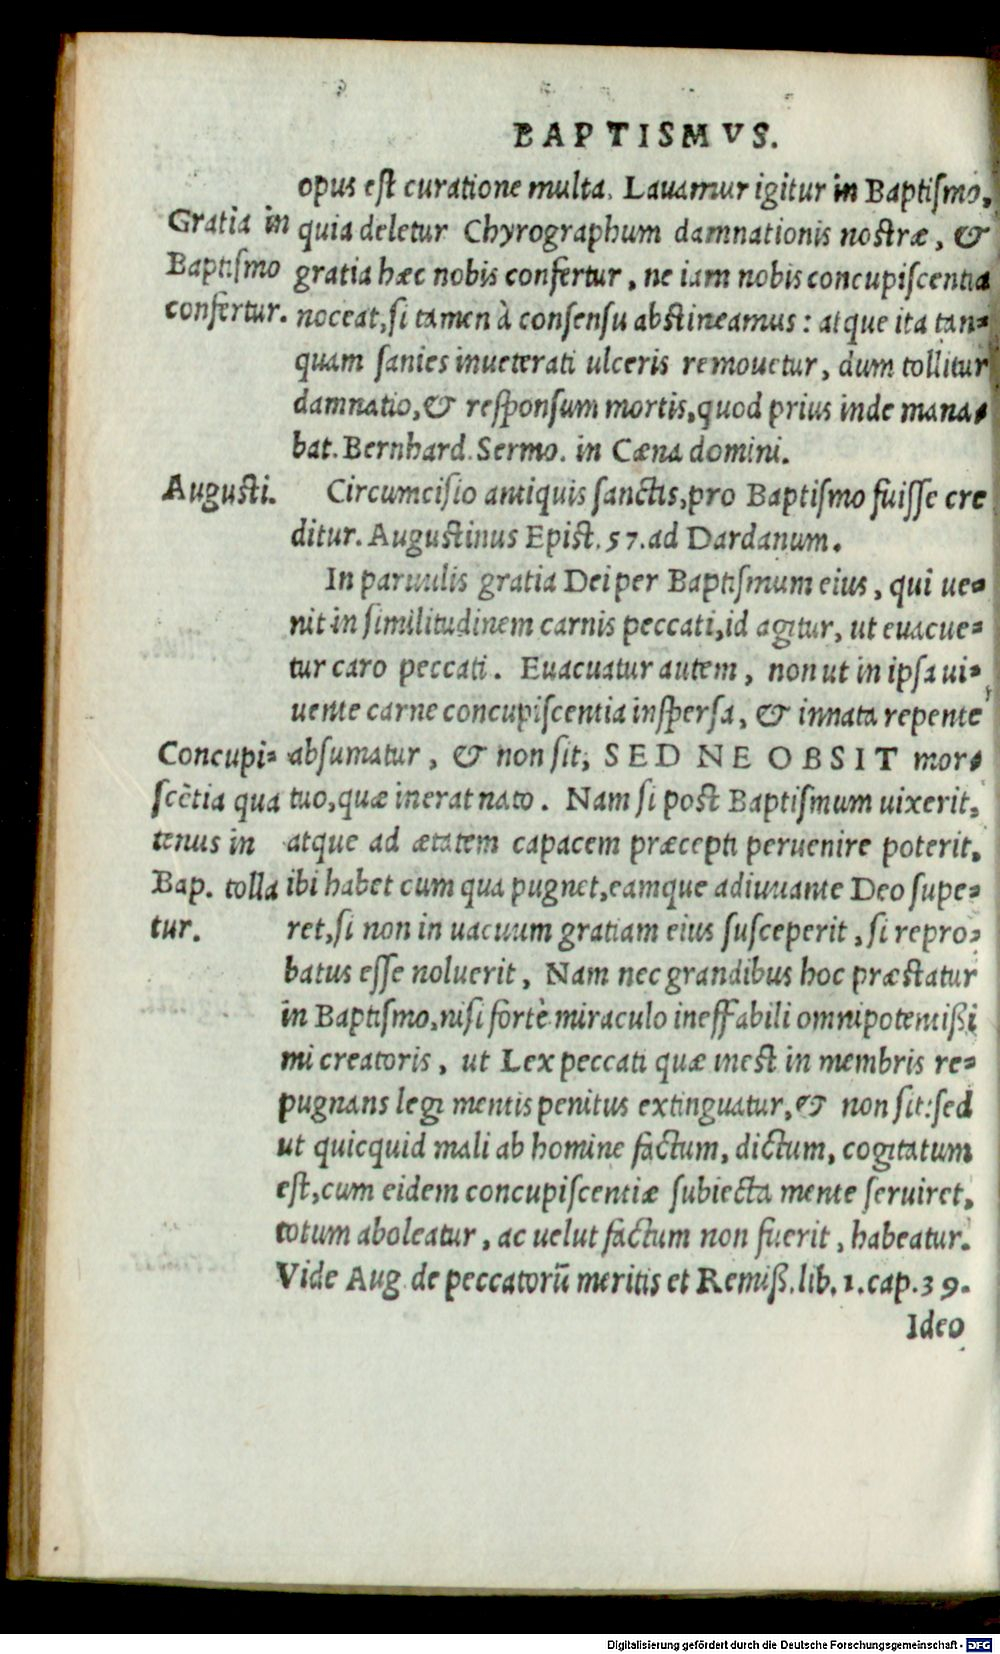 BAPTISMVS.
opus est curatione multa. Lauamur igitur in Baptismo,
Gratia in
Baptismo
confertur.
quia deletur Chyrographum damnationis nostræ, &
gratia hæc nobis confertur, ne iam nobis concupiscentia
noceat, si tamen à consensu abstineamus: atque ita tan=
quam sanies inueterati ulceris remouetur, dum tollitur
damnatio, & responsum mortis, quod prius inde mana=
bat. Bernhard. Sermo. in Cæna domini.
Augusti.
Circumcisio antiquis sanctis, pro Baptismo fuisse cre
ditur. Augustinus Epist. 57. ad Dardanum.
In paruulis gratia Dei per Baptismum eius, qui ue=
nit in similitudinem carnis peccati, id agitur, ut euacue=
tur caro peccati. Euacuatur autem, non ut in ipsa ui=
uente carne concupiscentia inspersa, & innata repente
Concupi=
scẽtia qua
tenus in
Bap. tolla
tur.
absumatur, & non sit, SED NE OBSIT mor=
tuo, quæ inerat nato. Nam si post Baptismum uixerit,
atque ad ætatem capacem præcepti peruenire poterit,
ibi habet cum qua pugnet, eamque adiuuante Deo supe=
ret, si non in uacuum gratiam eius susceperit, si repro=
batus esse noluerit, Nam nec grandibus hoc præstatur
in Baptismo, nisi fortè miraculo ineffabili omnipotentißi
mi creatoris, ut Lex peccati quæ inest in membris re=
pugnans legi mentis penitus extinguatur, & non sit: sed
ut quicquid mali ab homine factum, dictum, cogitatum
est, cum eidem concupiscentiæ subiecta mente seruiret,
totum aboleatur, ac uelut factum non fuerit, habeatur.
Vide Aug. de peccatorũ meritis et Remiß. lib. 1. cap. 39.
Ideo
Digitalisierung gefördert durch die Deutsche Forschungsgemeinschaft - DFG